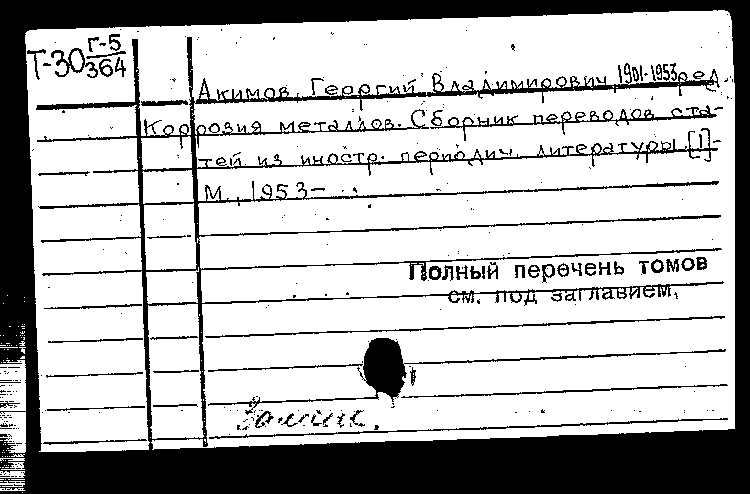 Т-30 Г-5/364
Акимов, Георгий Владимирович, 1901-1953 ред.
Коррозия металлов. Сборник переводов ста-
тей из иностр. периодич. литературы [1]-
М., 1953-
Полный перечень томов
см. под заглавием.